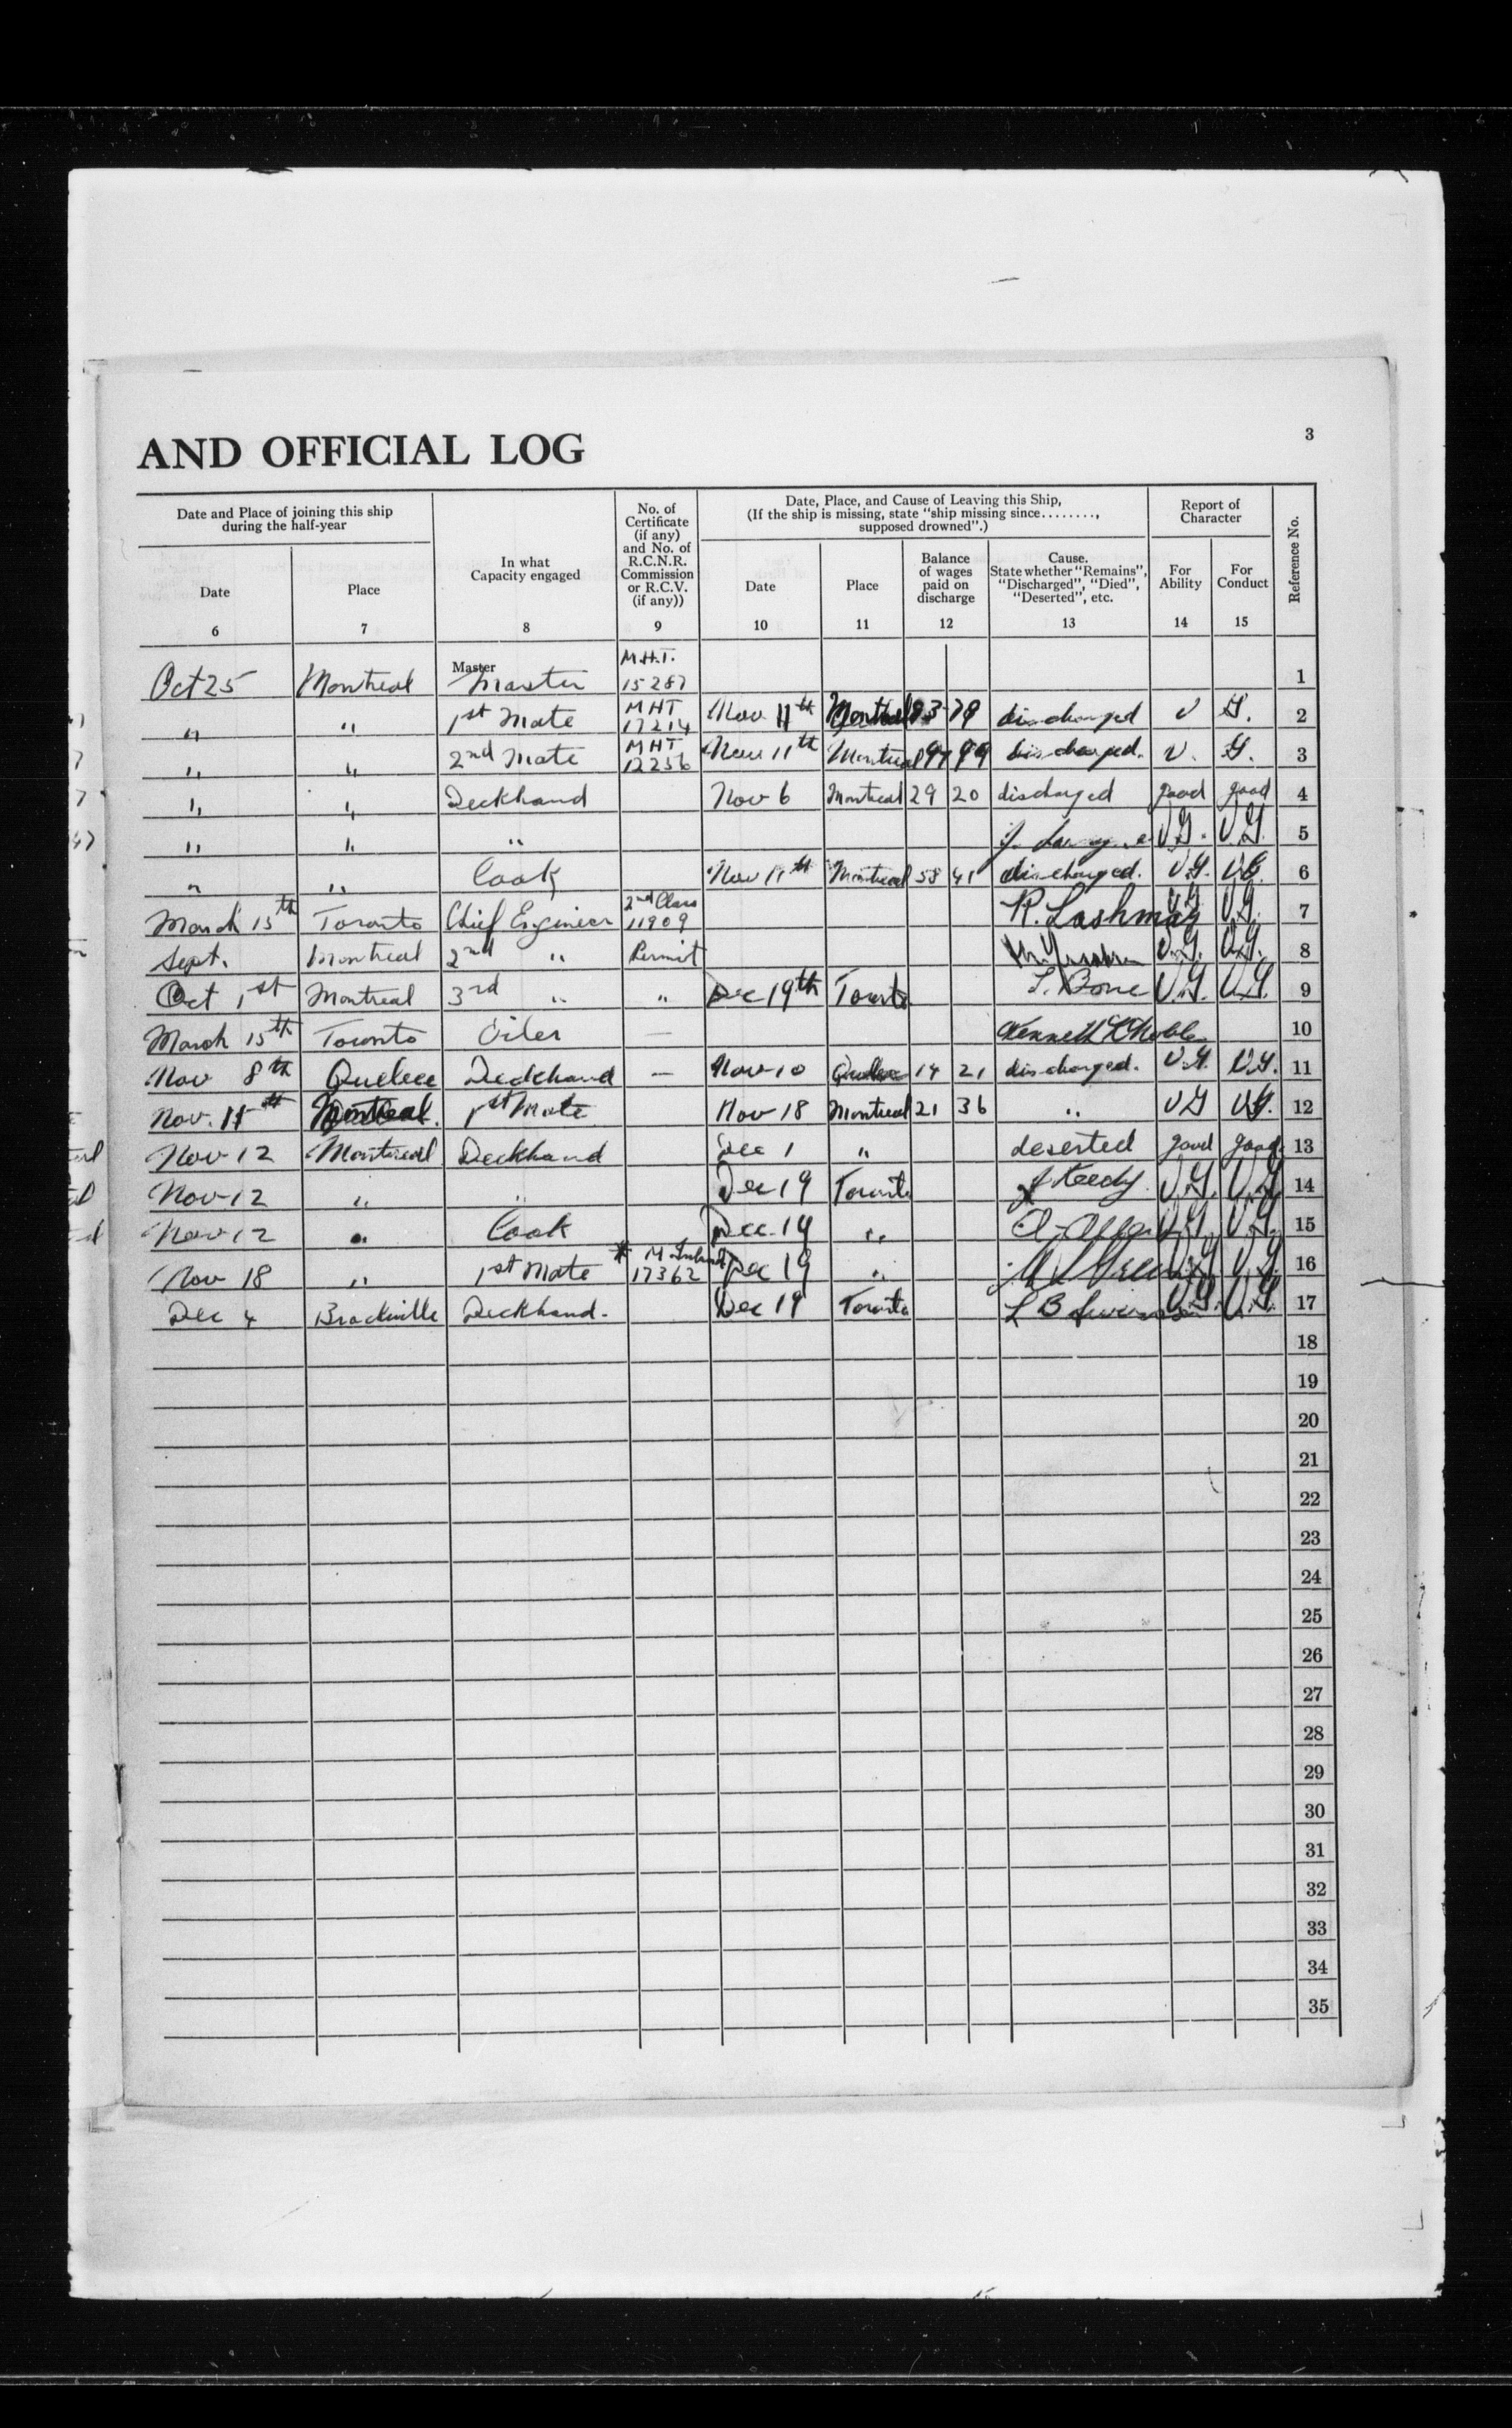 3
AND OFFICIAL LOG
Date and Place of joining this ship
during the half-year
Date
6
Place
7
In what
Capacity engaged
8
No. of
Certificate
(if any)
and No. of
R.C.N.R.
Commission
or R.C.V.
(if any))
9
Date, Place, and Cause of Leaving this Ship,
(If the ship is missing, state "ship missing since........,
supposed drowned".)
Date
10
Place
11
Balance
of wages
paid on
discharge
12
Cause.
State whether "Remains",
"Discharged", "Died",
"Deserted", etc.
13
Report of
Character
For
Ability
14
For
Conduct
15
Reference No.
Oct 25 Montreal Master Master M.H.T. 15287 1
" " 1st Mate MHT 17214 Nov 11th Montreal 79 discharged V G. 2
" " 2nd Mate MHT 12256 Nov 11th Montreal 99 discharged. V. G. 3
" " Deckhand Nov 6 Montreal 29 20 discharged good good 4
" " " V.G. V.G. 5
" " Cook Nov 11th Montreal 58 41 discharged. V.G. V.G. 6
March 15th Toronto Chief Engineer 2nd Class 11909 R. Lashmar V.G. V.G. 7
Sept. Montreal 2nd " Permit V.G. V.G. 8
Oct 1st Montreal 3rd " " Dec 19th Toronto Bone V.G. V.G. 9
March 15th Toronto Oiler — Kenneth Noble 10
Nov 8th Quebec Deckhand — Nov 10 Quebec 14 21 discharged. V.G. V.G. 11
Nov. 11th Montreal. 1st Mate Nov 18 Montreal 21 36 " V G V.G. 12
Nov 12 Montreal Deckhand Dec 1 " deserted good good 13
Nov 12 " " Dec 19 Toronto Keedy V.G. V.G. 14
Nov 12 " Cook Dec. 19 " V.G. V.G. 15
Nov 18 " 1st Mate 17362 Dec 19 " V.G. V.G. 16
Dec 4 Brockville Deckhand. Dec 19 Toronto L B V.G. V.G. 17
18
19
20
21
22
23
24
25
26
27
28
29
30
31
32
33
34
35